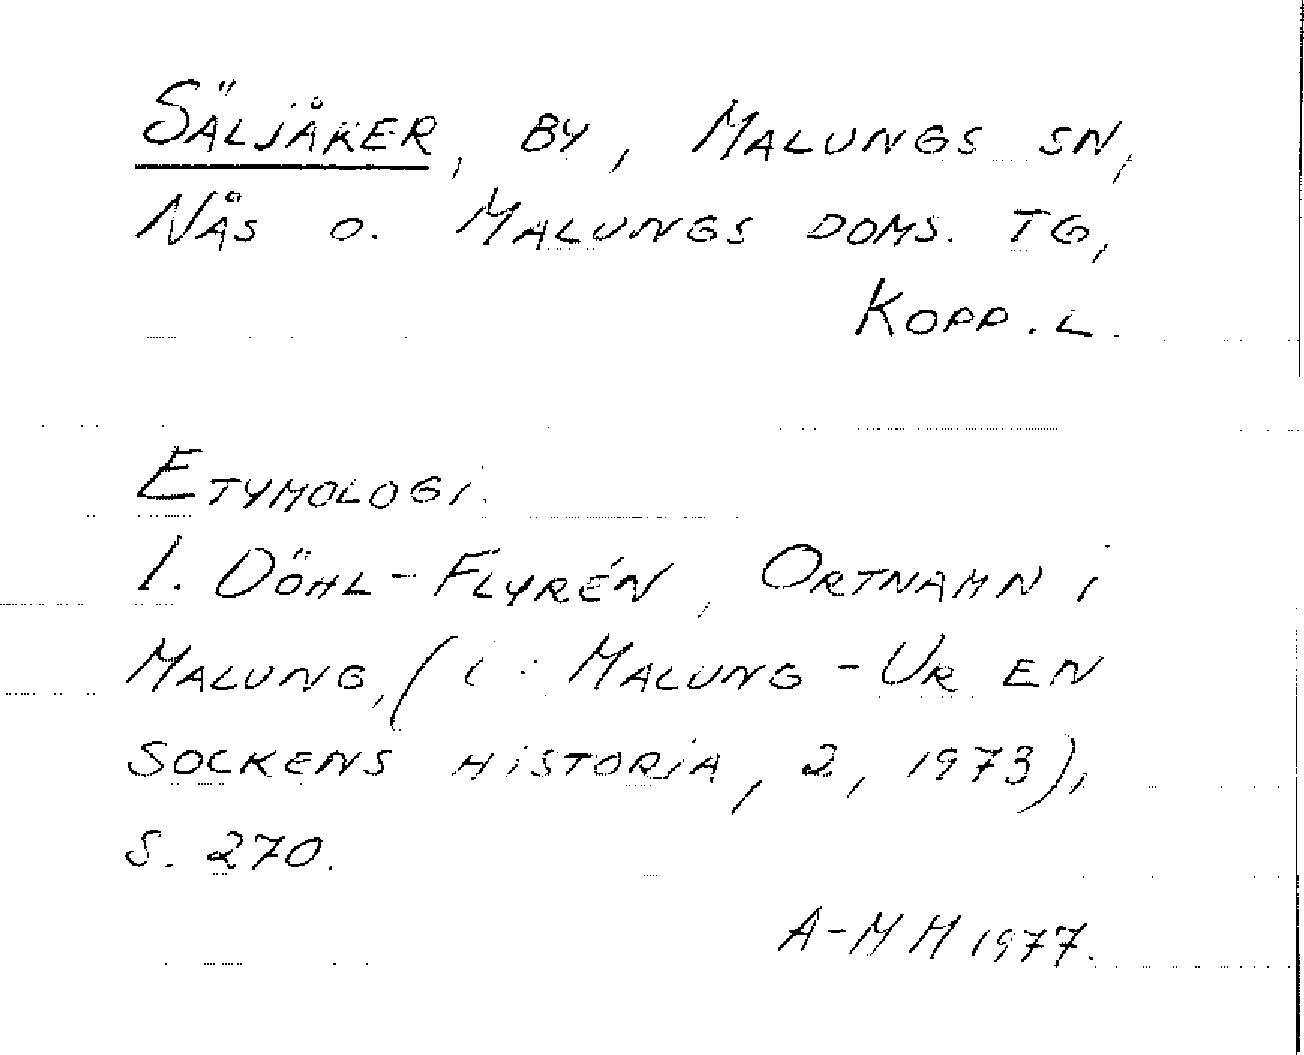 SÄLJÅKER, BY, MALUNGS SN,
NÅS O. MALUNGS DOMS. TG,
KOPP. L.
ETYMOLOGI.
I. DÖHL-FLYRÉN, ORTNAMN I
MALUNG, (I: MALUNG - UR EN
SOCKENS HISTORIA, 2, 1973),
S. 270.
A-MH 1977.